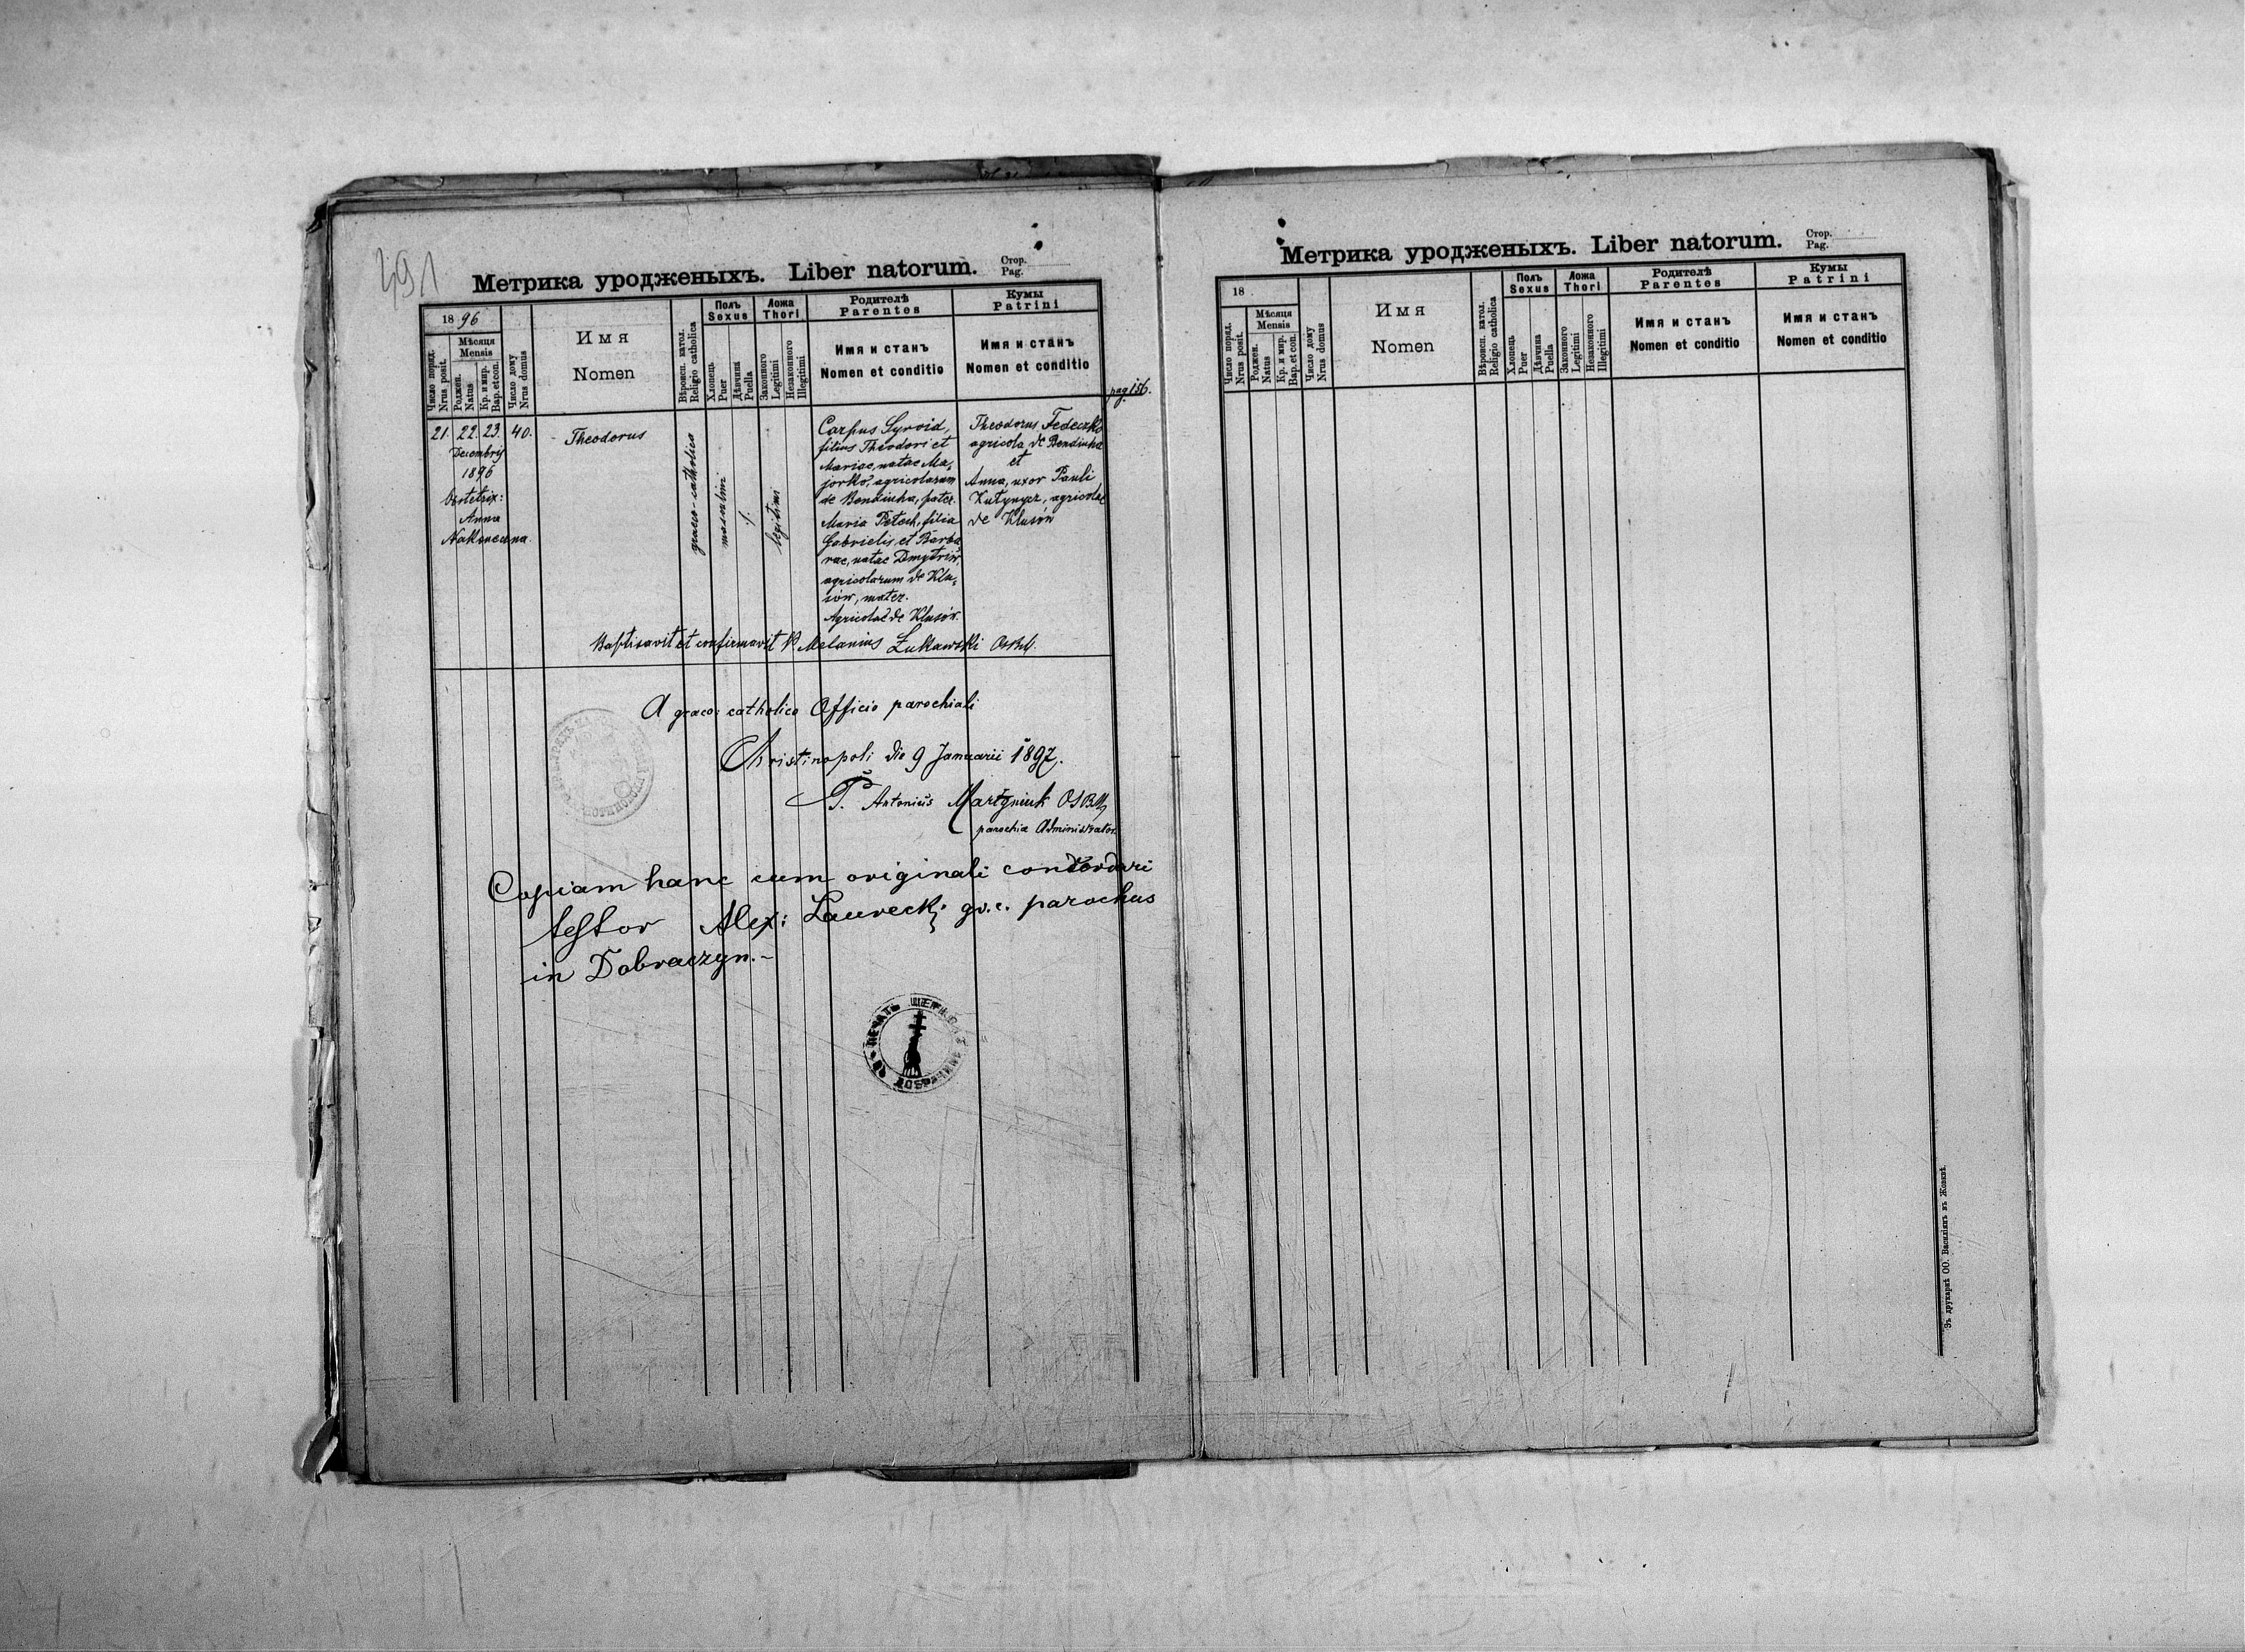 491
Метрика уродженыхъ. Liber natorum.
Стор.
Pag.
1896
Число поряд.
Nrus posit.
Мѣсяця
Mensis
Роджен.
Natus
Кр. и мир.
Bap. et con.
Число дому
Nrus domus
Имя
Nomen
Вѣроисп. катол.
Religio catholica
Полъ
Sexus
Хлопець
Puer
Дѣвчина
Puella
Ложа
Thori
Законного
Legitimi
Незаконного
Illegitimi
Родителѣ
Parentes
Имя и станъ
Nomen et conditio
Кумы
Patrini
Имя и станъ
Nomen et conditio
pag. 156.
21. 22. 23. 40.
Decembris
1896
Obstetrix:
Anna
Nakoneczna.
Theodorus
graeco-catholica
masculini
1.
legitimi
Carpus Syroid,
filius Theodori et
Mariae, natae Ma=
jorko, agricolarum
de Bendiuha, pater.
Maria Petech, filia
Gabrielis et Barba
rae, natae Dmytriw,
agricolarum de Klu=
sów, mater.
Agricolae de Klusów.
Theodorus Fedeczko
agricola de Bendiuha
et
Anna, uxor Pauli
agricolae
de Klusów
Baptisavit et confirmavit P. Melanius Łukawski OSBM.
A graeco: catholico Officio parochiali
Christinopoli die 9 Januarii 1897.
P. Antonius Martyniuk OSBM
parochiae Administrator.
Copiam hanc cum originali concordari
testor Alex: Laurecki gr. c. parochus
in Dobraczyn.-
ПЕЧАТЬ
Метрика уродженыхъ. Liber natorum.
Стор.
Pag.
18
Число поряд.
Nrus posit.
Мѣсяця
Mensis
Роджен.
Natus
Кр. и мир.
Bap. et con.
Число дому
Nrus domus
Имя
Nomen
Вѣроисп. катол.
Religio catholica
Полъ
Sexus
Хлопець
Puer
Дѣвчина
Puella
Ложа
Thori
Законного
Legitimi
Незаконного
Illegitimi
Родителѣ
Parentes
Имя и станъ
Nomen et conditio
Кумы
Patrini
Имя и станъ
Nomen et conditio
Зъ друкарнѣ ОО. Василіянъ въ Жовквѣ.